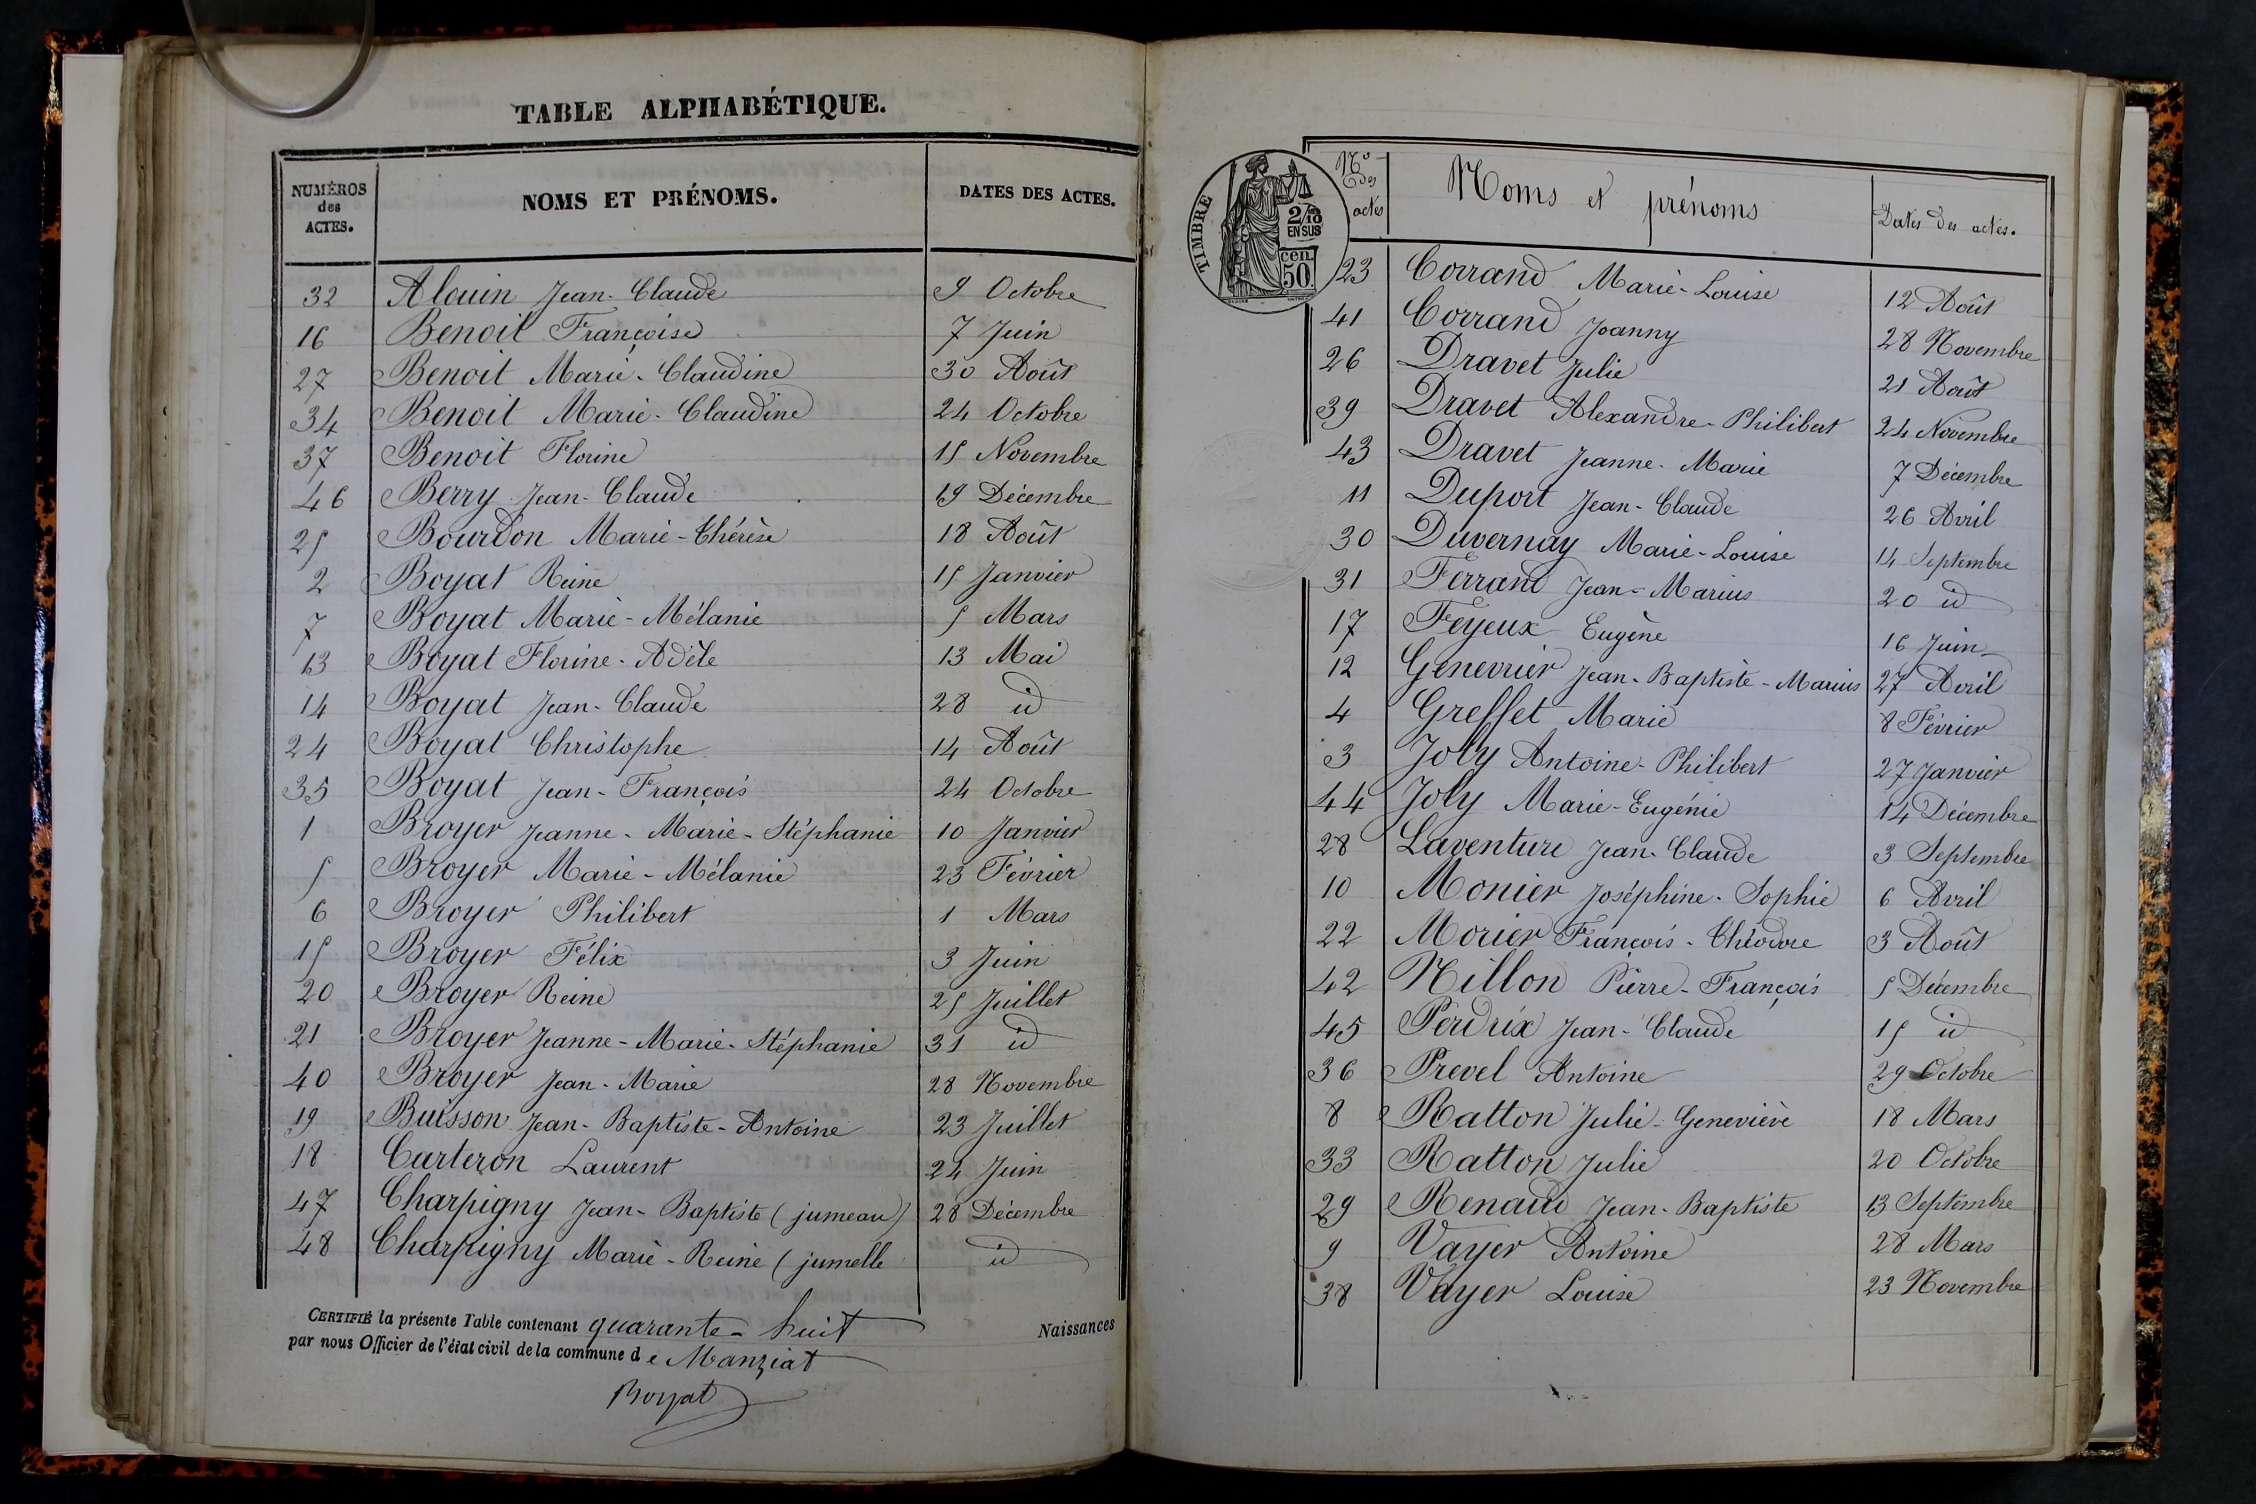 TABLE ALPHABÉTIQUE.
NUMÉROS des ACTES. NOMS ET PRÉNOMS. DATES DES ACTES.
32 Alouin Jean-Claude 9 Octobre
16 Benoit Françoise 7 Juin
27 Benoit Marie-Claudine 30 Août
34 Benoit Marie-Claudine 24 Octobre
37 Benoit Florine 15 Novembre
46 Berry Jean-Claude 19 Décembre
25 Bourdon Marie-Thérèse 18 Août
2 Boyat Reine 15 Janvier
7 Boyat Marie-Mélanie 5 Mars
13 Boyat Florine-Adèle 13 Mai
14 Boyat Jean-Claude 28 id
24 Boyat Christophe 14 Août
35 Boyat Jean-François 24 Octobre
1 Broyer Jeanne-Marie-Stéphanie 10 Janvier
5 Broyer Marie-Mélanie 23 Février
6 Broyer Philibert 1 Mars
15 Broyer Félix 3 Juin
20 Broyer Reine 25 Juillet
21 Broyer Jeanne-Marie-Stéphanie 31 id
40 Broyer Jean-Marie 28 Novembre
19 Buisson Jean-Baptiste-Antoine 23 Juillet
18 Carteron Laurent 24 Juin
47 Charpigny Jean-Baptiste (jumeau) 28 Décembre
48 Charpigny Marie-Reine (jumelle id
CERTIFIÉ la présente Table contenant quarante-huit Naissances
par nous Officier de l'état civil de la commune de Manziat
Boyat
TIMBRE
2/10 EN SUS
50 cen.
Nos des actes Noms et prénoms Dates des actes.
23 Corrand Marie-Louise 12 Août
41 Corrand Joanny 28 Novembre
26 Dravet Julie 21 Août
39 Dravet Alexandre-Philibert 24 Novembre
43 Dravet Jeanne-Marie 7 Décembre
11 Duport Jean-Claude 26 Avril
30 Duvernay Marie-Louise 14 Septembre
31 Ferrand Jean-Marius 20 id
17 Feyeux Eugène 16 Juin
12 Genevrier Jean-Baptiste-Marius 27 Avril
4 Greffet Marie 8 Février
3 Joly Antoine-Philibert 27 Janvier
44 Joly Marie-Eugénie 14 Décembre
28 Laventure Jean-Claude 3 Septembre
10 Monier Joséphine-Sophie 6 Avril
22 Morier François-Théodore 3 Août
42 Nillon Pierre-François 5 Décembre
45 Perdrix Jean-Claude 15 id
36 Prevel Antoine 29 Octobre
8 Ratton Julie-Geneviève 18 Mars
33 Ratton Julie 20 Octobre
29 Renaud Jean-Baptiste 13 Septembre
9 Vayer Antoine 28 Mars
38 Vayer Louise 23 Novembre